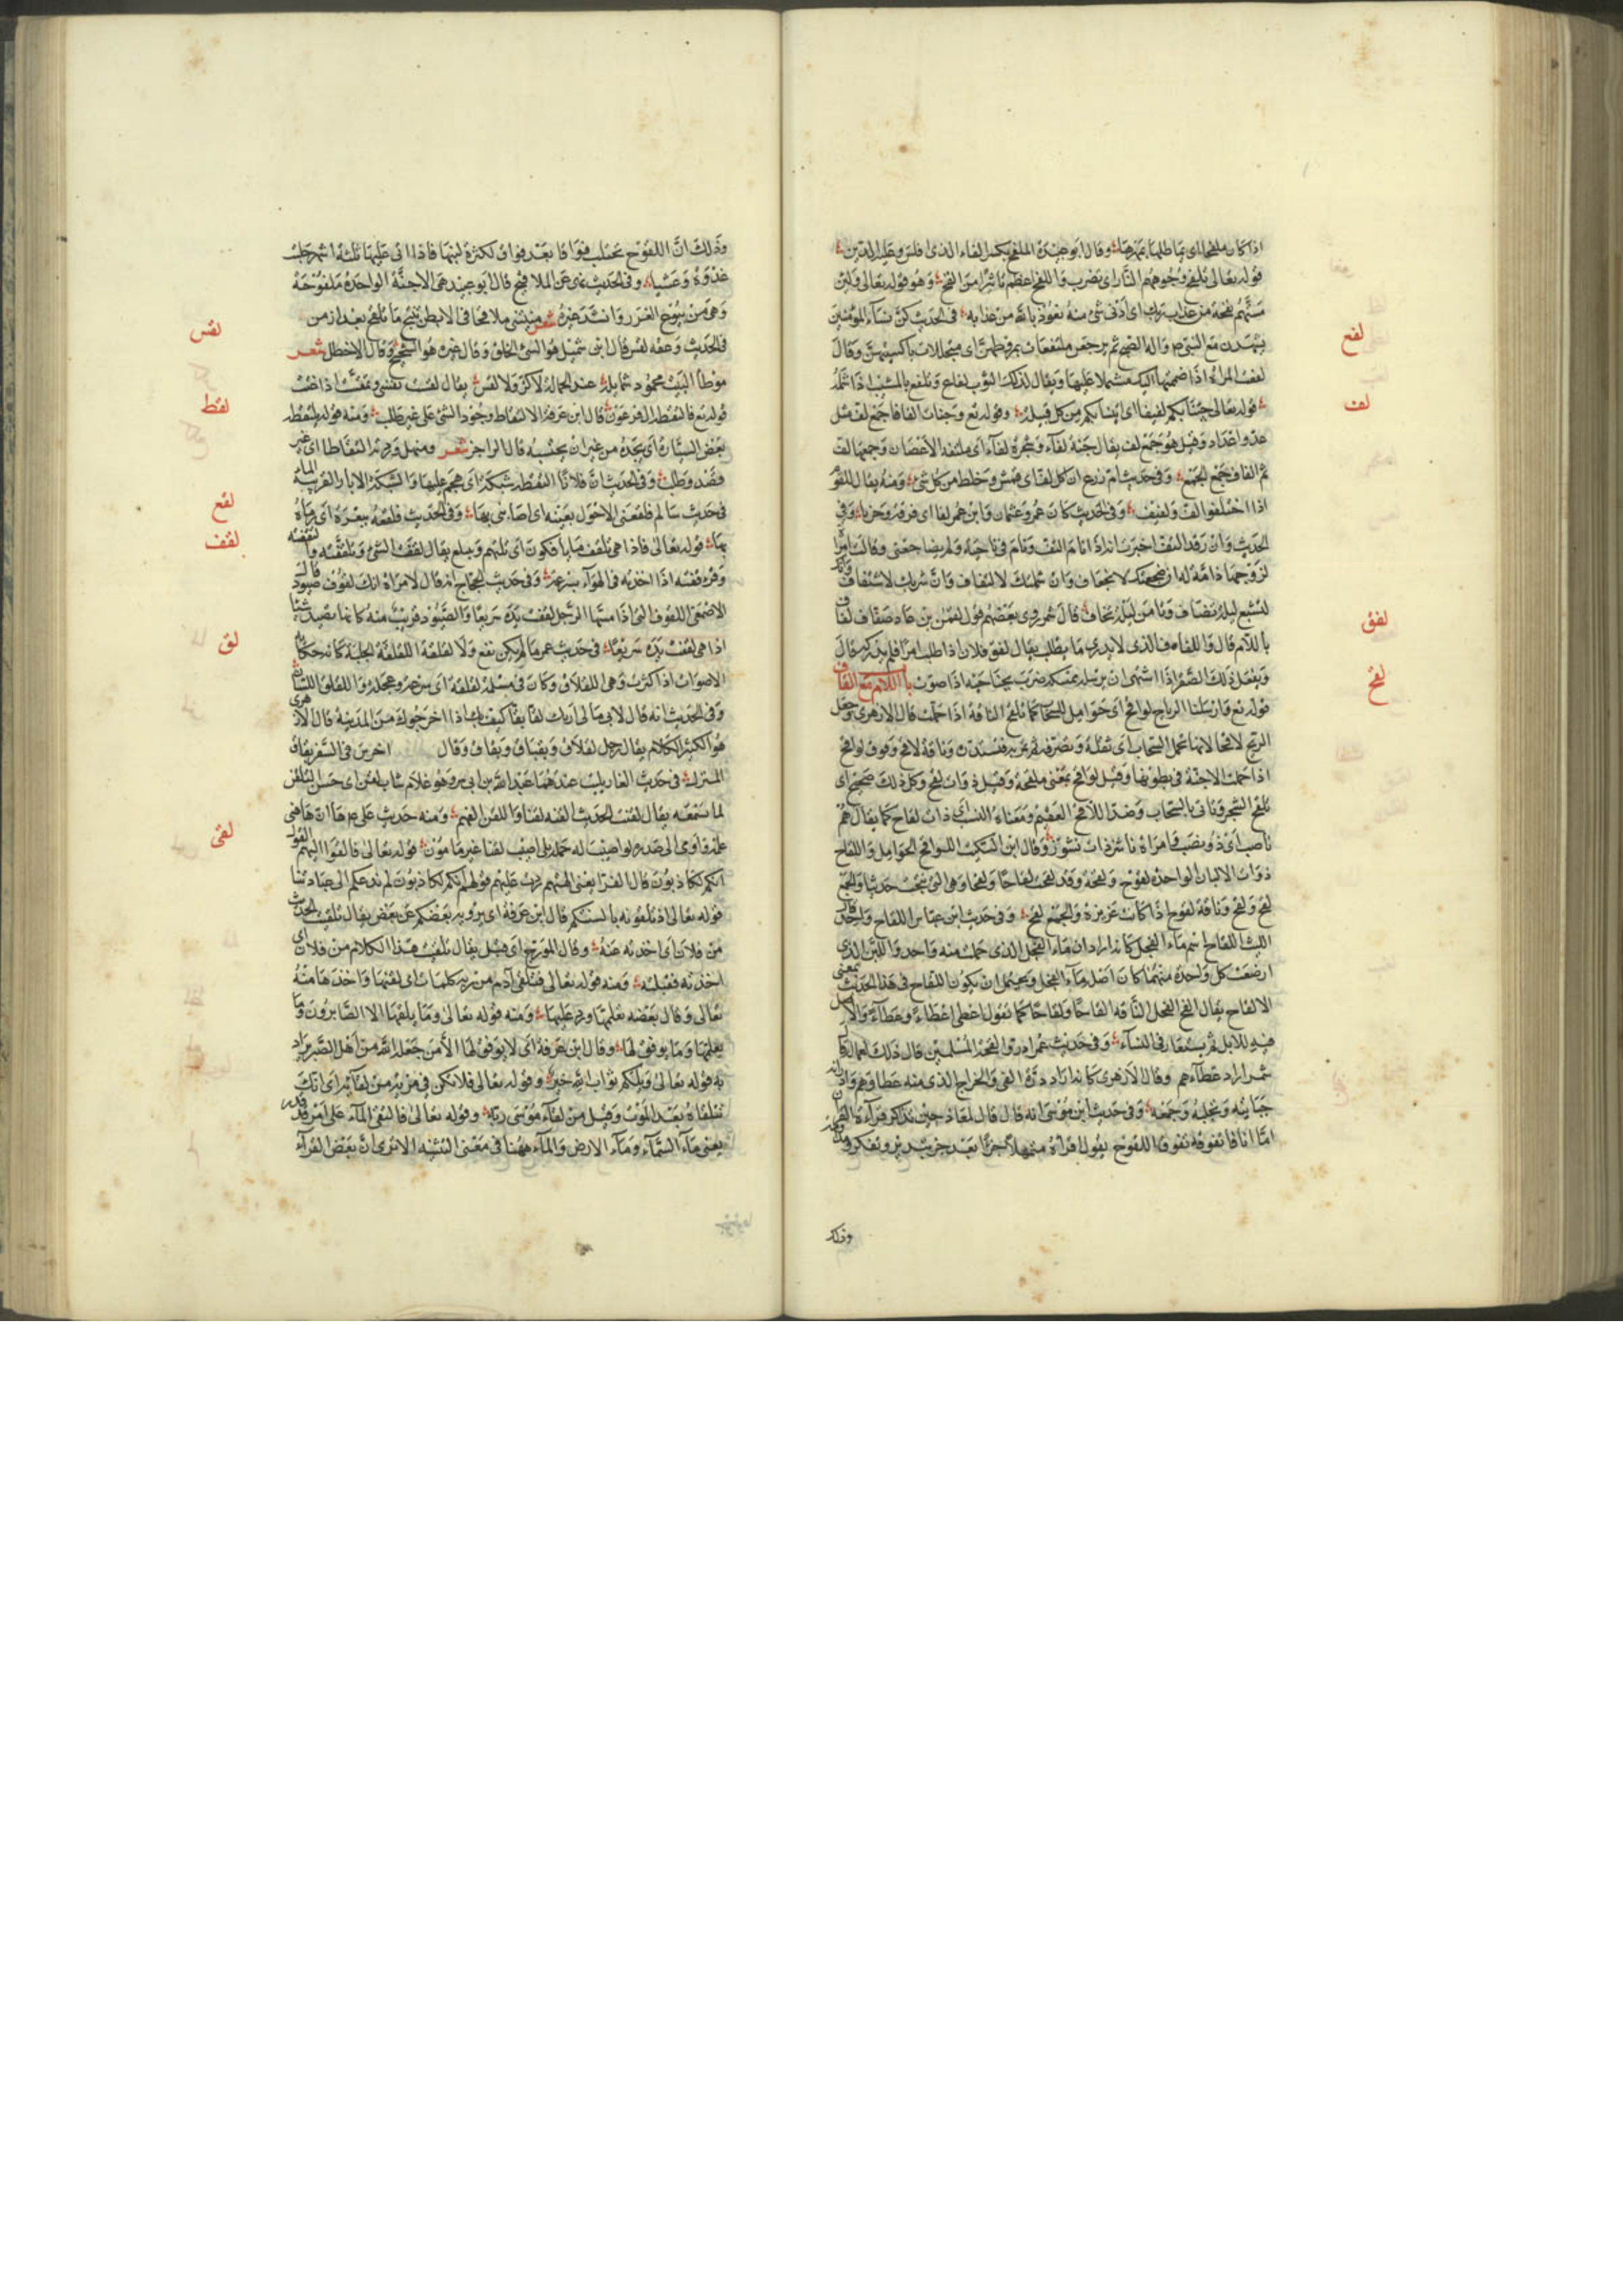 اذا كان ملفجا اى بما طلها بمهرها وقال ابو عبيدة الملفج بكسر الفاء الذى افلس وعليه الدين
قوله تعالى تلفح وجوههم النار اى تضرب واللفح اعظم تاثيرا من النفح وهو قوله تعالى ولئن
مستهم نفحة من عذاب ربك اى ادنى شئ منه نعوذ بالله من عذابه فى الحديث كن نساء المؤمنين
لفع
يشهدن مع النبى واله الصبح ثم يرجعن متلفعات بمروطهن اى متجللات باكسيتهن وقال
لفعت المراة اذا ضممتها اليك مشتملا عليها ويقال لذلك الثوب لفاع وتلفع بالمشيب اذا شمله
لف
قوله تعالى جئنا بكم لفيفا اى اتينا بكم من كل قبيلة وقوله تع وجنات الفافا جمع لف مثل
عد واعداد وقيل هو جمع لف يقال جنة لفاء وشجرة لفاء اى ملتفة الاغصان وجمعها لف
ثم الفاف جمع الجمع وفى حديث ام زرع ان اكل لف اى قمش وخلط من كل شئ ومنه يقال للقوم
اذا اختلفوا لف ولفيف وفى الحديث كان عمر وعثمان وابن عمر لفا اى فرقة وحزبا وفى
الحديث وان رقد التف اخبرت انه اذا نام التف ونام فى ناحية ولم يضاجعنى وقالت امراة
لزوجها ذامة له ان ضجعتك لانجعاف وان شملتك لالتفاف وان شربك لاشتفاف وانك
لفق
لتشبع ليلة تضاف وتامن ليلة تخاف قال شمر روى بعضهم قول لقمن بن عاد صفاق لفاق
باللام قال واللفاق الذى لا يدرك ما يطلب يقال لفق فلان اذا طلب امرا فلم يدركه قال
ويفعل ذلك الصقر اذا اشتهى ان يرسله بمسكه ضرب بجناحيه اذا صوت باب اللام مع القاف
لقح
قوله تع وارسلنا الرياح لواقح اى حوامل للسحاب كما تلقح الناقة اذا حملت قال الازهرى وجعل
الريح لاقحا لانها تحمل السحاب اى تقله وتصرفه ثم تمر به فتستدره وناقة لاقح ونوق لواقح
اذا حملت الاجنة فى بطونها وقيل لواقح بمعنى ملقحة وقيل ذوات لقح وكل ذلك صحيح اى
تلقح الشجر وتاتى بالسحاب وضد اللاقح العقيم ومعناه النسب اى ذات لقاح كما يقال هم
ناصب اى ذو نصب وامراة ناشز ذات نشوز وقال ابن السكيت اللواقح الحوامل واللقاح
ذوات الالبان الواحدة لقوح ولقحة وقد لقحت لقاحا ولقحا وهى التى نتجت حديثا والجمع
لقح ولقح وناقة لقوح اذا كانت غزيرة والجمع لقح وفى حديث ابن عباس اللقاح واحد قال
الليث اللقاح اسم ماء الفحل كانه اراد ان ماء الفحل الذى حملت منه واحد واللبن الذى
ارضعت كل واحدة منهما كان اصله ماء الفحل ويحتمل ان يكون اللقاح فى هذا الحديث بمعنى
الالقاح يقال القح الفحل الناقة القاحا ولقاحا كما تقول اعطى اعطاء وعطاء والاصل
فيه للابل ثم يستعار فى النساء وفى حديث عمر ادروا لقحة المسلمين قال ذلك لعماله قال
شمر اراد عطاءهم وقال الازهرى كانه اراد درة الفئ والخراج الذى منه عطاوهم وادراره
جبايته وتحلبه وجمعه وفى حديث ابن موسى انه قال لمعاذ حين تذاكر قراءة القران
اما انا فاتفوقه تفوق اللقوح يقول اقراه متمهلا جزءا بعد جزء بتدبر وتفكر
وذلك
وذلك ان اللقوح تحتلب فواقا بعد فواق لكثرة لبنها فاذا اتى عليها ثلثة اشهر حلبت
غدوة وعشيا وفى الحديث نهى عن الملاقيح قال ابو عبيد هى الاجنة الواحدة ملقوحة
وهى من بيوع الغرر وانشد غيره شعر منيتنى ملاقحا فى الابطن تنتج ما تلقح بعد ازمن
لقس
فى الحديث وعقه لقس قال ابن شميل هو السئ الخلق وقال غيره هو الشحيح وقال الاخطل شعر
موطأ البيت محمود شمايله عند الحمالة لا كز ولا لقس يقال لقست نفسى وتمقست اذا غثت
لقط
قوله تع فالتقطه ال فرعون قال ابن عرفة الالتقاط وجود الشئ على غير طلب ومنه قوله يلتقطه
بعض السيارة اى يجده من غير ان يحتسبه قال الراجز شعر ومنهل وردته التقاطا اى غير
قصد وطلب وفى الحديث ان فلانا التقط شبكة اى هجم عليها والشبكة الابار القريبة الماء
لقع
فى حديث سالم فلقعنى الاحول بعينه اى اصابنى بها وفى الحديث فلقعه ببعرة اى رماه
لقف
بها قوله تعالى فاذا هى تلقف ما يأفكون اى تلتهم وتبلع يقال لقفت الشئ وتلقفته والتقفته
وتزقفته اذا اخذته فى الهواء بسرعة وفى حديث الحجاج انه قال لامراة انك لقوف صيود قال
الاصمعى اللقوف التى اذا مسها الرجل لقفت يده سريعا والصيود قريب منه كانها تصيد شيئا
لق
اذا هى لقفت يده سريعا فى حديث عمر ما لم يكن نقع ولا لقلقة اللقلقة الجلبة كانه حكاية
الاصوات اذا كثرت وهى اللقلاق وكان فى مسئلة لقلقة اى سرعة وعجلة واللقلق اللسان
وفى الحديث انه قال لابى ما لى اراك لقا بقا كيف بك اذا اخرجوك من المدينة قال الازهرى
هو الكثير الكلام يقال رجل لقلاق وبقباق وبقاق وقال اخرس فى السفر بقاق
المنزل فى حديث الغار يبيت عندهما عبد الله بن ابى بكر وهو غلام شاب لقن اى حسن التلقن
لما سمعه يقال لقنت الحديث القنه لقنا واللقن الفهم ومنه حديث على ان هاهنا
لقى
علما واومى الى صدره لو اصبت له حملة بلى اصيب لقنا غير مامون قوله تعالى فالقوا اليهم القول
انكم لكاذبون قال الفرا يعنى الهتهم ردت عليهم قولهم انكم لكاذبون لم ندعكم الى عبادتنا
قوله تعالى اذ تلقونه بالسنتكم قال ابن عرفة اى يرويه بعضكم عن بعض يقال تلقيت الحديث
من فلان اى اخذته عنه وقال المورج اى قبل يقال تلقيت هذا الكلام من فلان اى
اخذته فقبلته ومنه قوله تعالى فتلقى آدم من ربه كلمات اى لقنها واخذها منه
تعالى وقال بعضه تعلمها ومنه قوله تعالى وما يلقيها الا الصابرون وما
يعلمها وما يوفق لها وقال ابن عرفة اى لا يوفق لها الا من جعله الله من اهل الصبر يراد
به قوله تعالى ويلكم ثواب الله خير وقوله تعالى فلا تكن فى مرية من لقائه اى انك
ستلقاه بعد الموت وقيل من لقاء موسى ربه وقوله تعالى فالتقى الماء على امر قد قدر
يعنى ماء السماء وماء الارض والماء ههنا فى معنى التثنية الا ترى ان بعض القراء